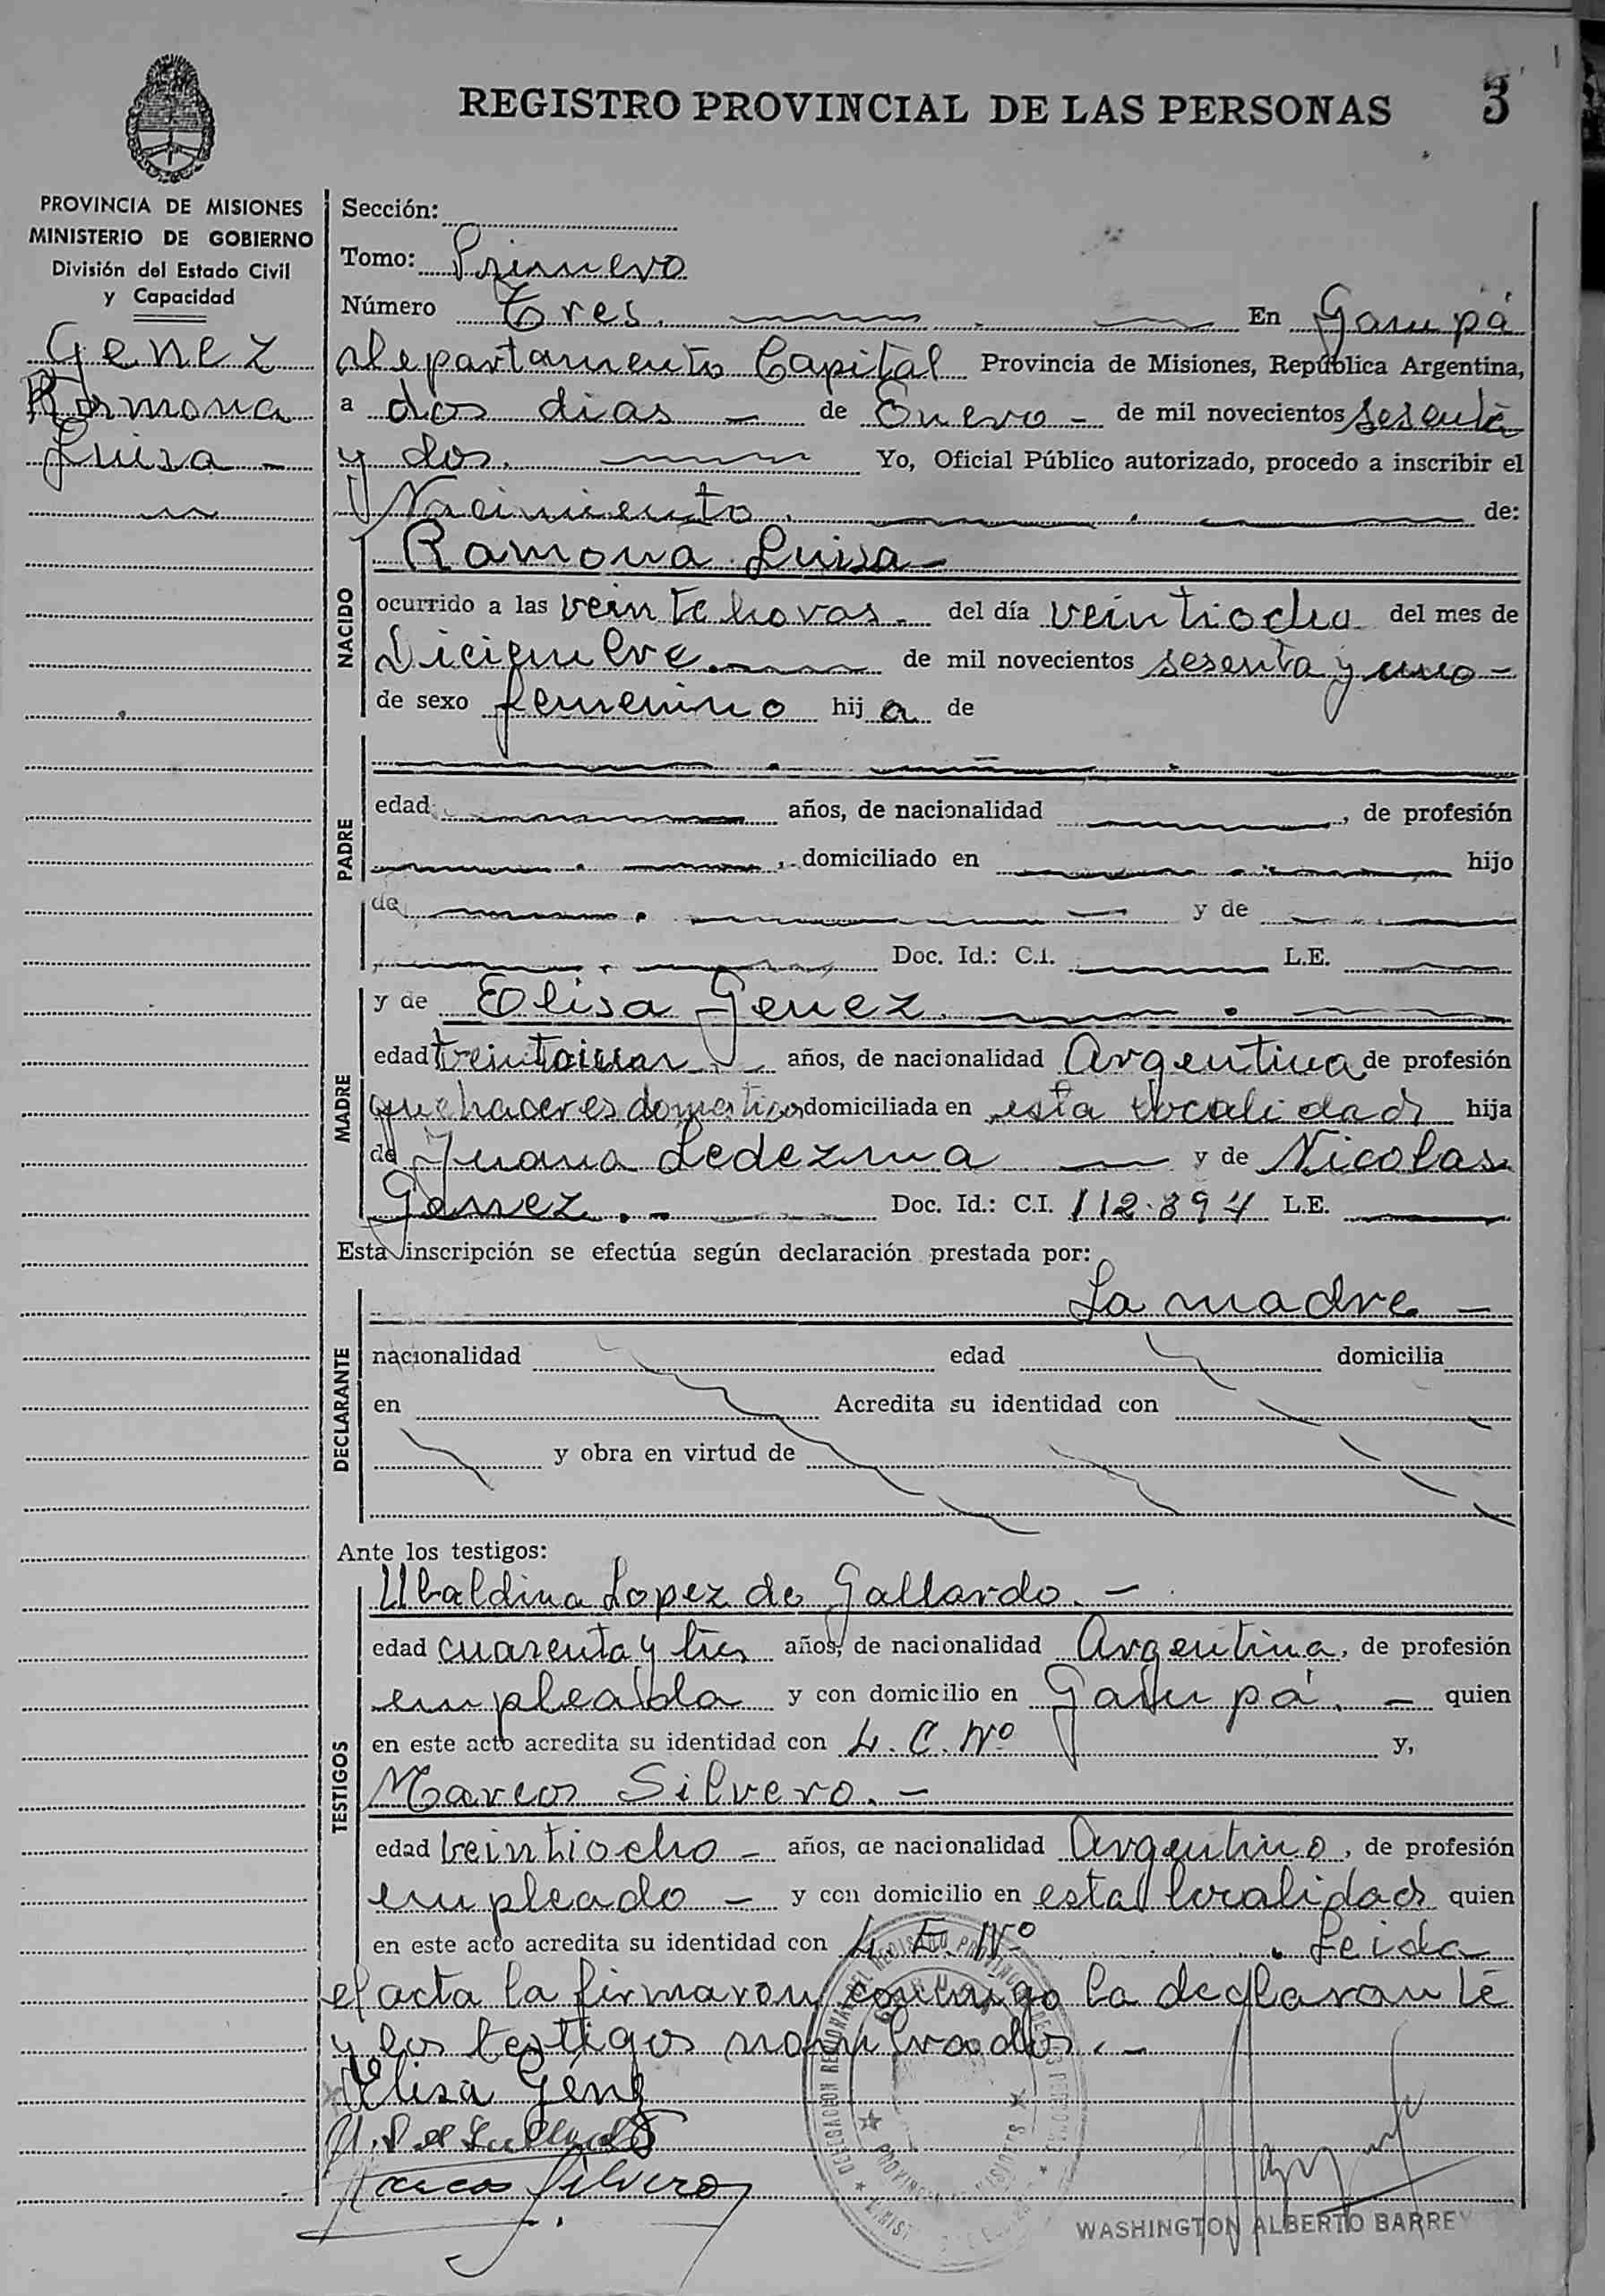 REGISTRO PROVINCIAL DE LAS PERSONAS 3
PROVINCIA DE MISIONES
MINISTERIO DE GOBIERNO
División del Estado Civil
y Capacidad
Genez
Ramona
Luisa -
Sección:
Tomo: Primero
Número Tres. En Garupá
departamento Capital Provincia de Misiones, República Argentina,
a dos dias - de Enero - de mil novecientos sesenta
y dos. Yo, Oficial Público autorizado, procedo a inscribir el
Nacimiento. de:
NACIDO
Ramona Luisa -
ocurrido a las veinte horas. del día veintiocho del mes de
Diciembre. de mil novecientos sesenta y uno -
de sexo femenino hij a de
PADRE
edad años, de nacionalidad , de profesión
, domiciliado en hijo
de y de
Doc. Id.: C.I. L.E.
MADRE
y de Elisa Genez.
edad años, de nacionalidad Argentina de profesión
quehaceres domesticos domiciliada en esta localidad hija
de Juana Ledezma y de Nicolas
Genez. - Doc. Id.: C.I. 112.894 L.E.
Esta inscripción se efectúa según declaración prestada por:
DECLARANTE
La madre -
nacionalidad edad domicilia
en Acredita su identidad con
y obra en virtud de
Ante los testigos:
TESTIGOS
Ubaldina Lopez de Gallardo. -
edad cuarenta y tres años, de nacionalidad Argentina, de profesión
empleada y con domicilio en Garupá. - quien
en este acto acredita su identidad con L. C. Nº y,
Marcos Silvero. -
edad veintiocho - años, de nacionalidad Argentino, de profesión
empleado - y con domicilio en esta localidad quien
en este acto acredita su identidad con L. E. Nº . Leida
el acta la firmaron conmigo la declarante
y los testigos nombrados. -
Elisa Genez
Marcos Silvero
WASHINGTON ALBERTO BARREY